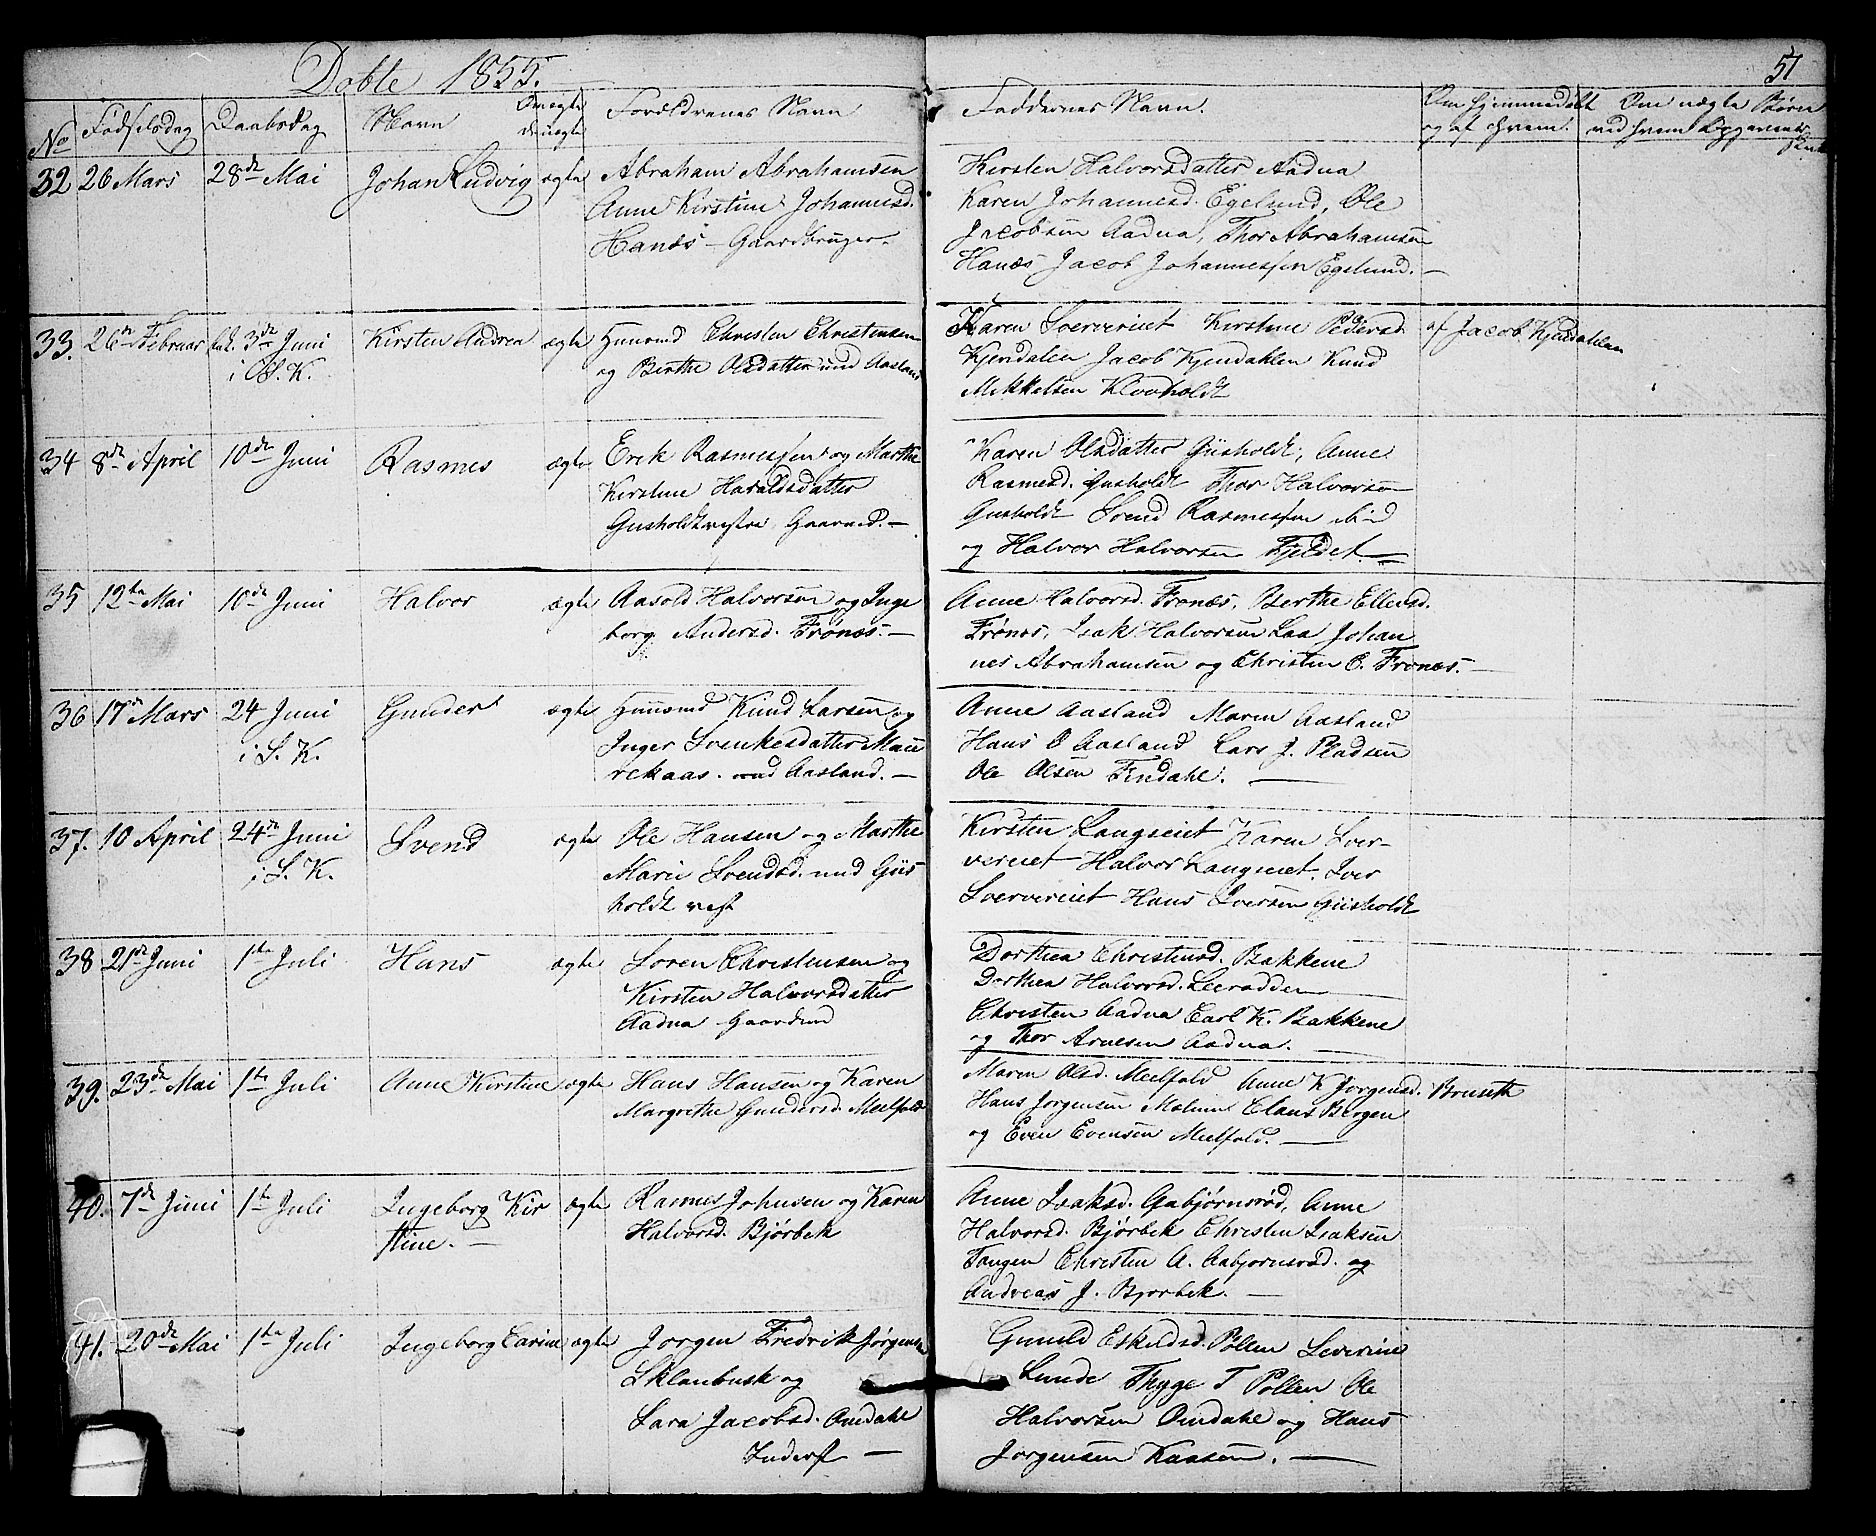 Døbte 1855.
51
No Fødselsdag Daabsdag Navn Om ægte Forældrenes Navn Faddernes Navn. Om hjemmedøbt Om uægte Børn
og af hvem. ved hvem
32 26 Mars 28de Mai Johan Ludvig ægte Abraham Abrahamsen
Anne Kirstine Johannesd.
Hanæs – Gaardbruger.
Kirsten Halvorsdatter Aadna
Karen Johannesd. Egelund, Ole
Jacobsen Aadna, Thor Abrahamsen
Hanæs Jacob Johannessen Egelund. –
33. 26de Februar 3de Juni Kirsten Andrea ægte Huusmd Christen Christensen
i S. K. og Berthe Olsdatter und Aasland
Karen Kirstine Pedersd.
Kjendalen Jacob Kjendahlen Knud
Mikkelsen Klovholdt
af Jacob Kjendahlen
34 8de April 10de Juni Rasmus ægte Erik Rasmussen og Marthe
Kirstine Haraldsdatter
Gusholdt vestre Gaarmd. –
Karen Olsdatter Gusholdt, Anne
Rasmusd. Gusholdt Thor Halvorsen
Gusholdt Svend Rasmussen ibid
og Halvor Halvorsen Fjeldet. –
35 12te Mai 10de Juni Halvor ægte Aasold Halvorsen og Inge
borg Andersd. Frønæs. –
Anne Halvorsd. Frønæs, Berthe Ellensd.
Frønæs, Isak Halvorsen Laa Johan
nes Abrahamsen og Christen C. Frønæs. –
36 17de Mars 24 Juni Gunder ægte Huusmd Knud Larsen og
i S. K. Inger Svenkesdatter Mau
rekaas. und Aasland. –
Anne Aasland Maren Aasland
Hans O Aasland Lars J. Pladsen
Ole Olsen Findahl. –
37. 10 April 24de Juni Svend ægte Ole Hansen og Marthe
i S. K. Marie Svendsd. und Gus
holdt vest
Kirsten Langseiet Karen Sver-
vereiet Halvor Langseiet. Iver
Sververeiet Hans Iversen Gusholdt
38 21de Juni 1te Juli Hans ægte Søren Christensen og
Kirsten Halvorsdatter
Aadna Gaardmd
Dorthea Christensd. Bakkene
Dorthea Halvorsd. Leeradden
Christen Aadna Carl K. Bakkene
og Thor Arnesen Aadna. –
39. 23de Mai 1te Juli Anne Kirstine ægte Hans Hansen og Karen
Margrethe Gundersd. Meelfald
Maren Olsd. Meelfald Anne K Jørgensd. Bruseth
Hans Jørgensen Malmen Claus Bergen
og Even Evensen Meelfald. –
40. 7de Juni 1te Juli Ingeborg Kir ægte Rasmus Johnsen og Karen
stine. – Halvorsd. Bjørbek
Anne Isaksd. Gabjørnsrød, Anne
Halvorsd. Bjørbek Christen Isaksen
Tangen Christen A. Aabjørnsrød. og
Andreas J. Bjørbek. –
41. 20de Mai 1te Juli Ingeborg Carine ægte Jørgen Fredrik Jørgensen
Sklanbusk og
Sara Jacobsd. Omdahl
Inderst –
Gunild Eskildsd. Pollen Severine
Lunde Thyge T Pollen Ole
Halvorsen Omdahl og Hans
Jørgensen Kaasen. –